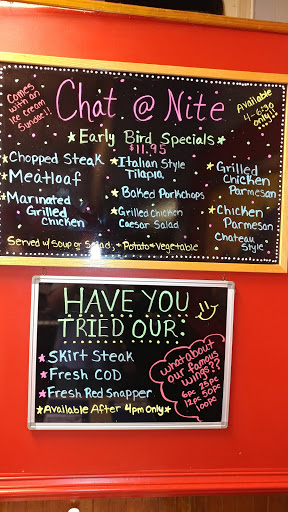 Comes
with an
ice cream
Sundae!!
Chat @ Nite
Available
4-6:30
only!!
Early Bird Specials
$11.95
Chopped Steak
Meatloaf
Marinated
Grilled
Chicken
Italian Style
Tilapia
Baked Porkchops
Grilled Chicken
Caesar Salad
Grilled
Chicken
Parmesan
Chicken
Parmesan
Chateau
Style
Served w/ Soup or Salad, + Potato + Vegetable
HAVE YOU
TRIED OUR:
Skirt Steak
Fresh COD
Fresh Red Snapper
Available After 4pm Only
what about
our famous
wings??
6pc 25pc
12pc 50pc
100pc